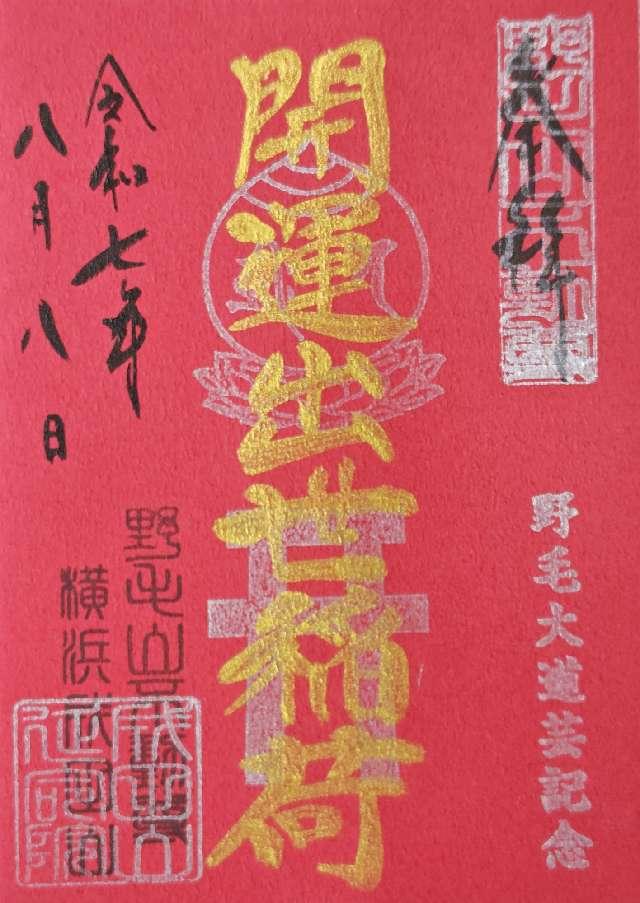 奉拝
野毛大道芸記念
開運出世稲荷
令和七年
八月八日
野毛山
横浜